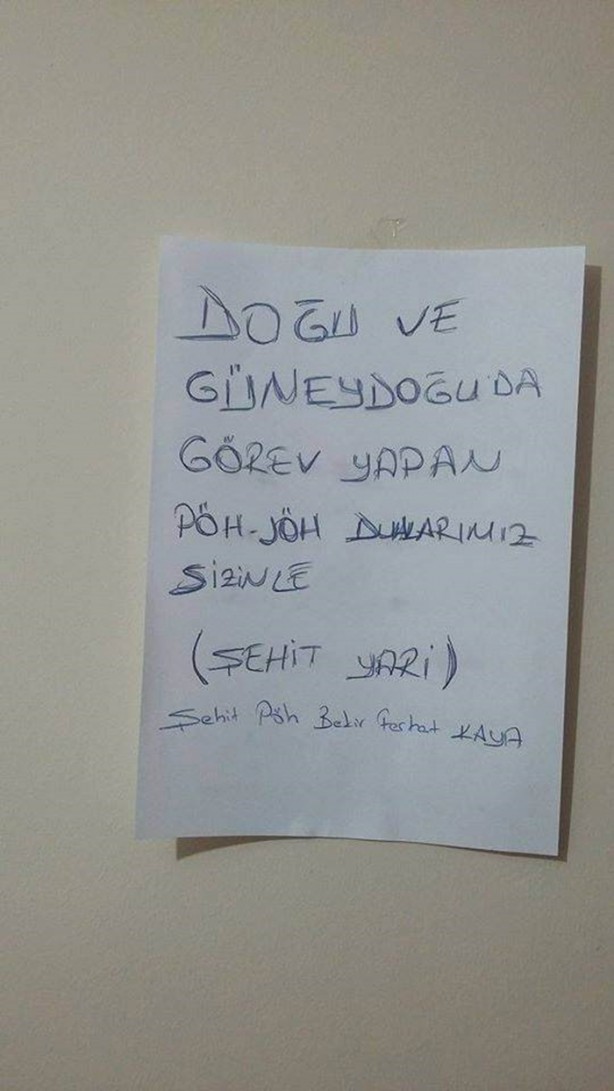 DOĞU VE
GÜNEYDOĞU'DA
GÖREV YAPAN
PÖH-JÖH DUALARIMIZ
SİZİNLE
(ŞEHİT YARİ)
Şehit Pöh Bekir Ferhat KAYA